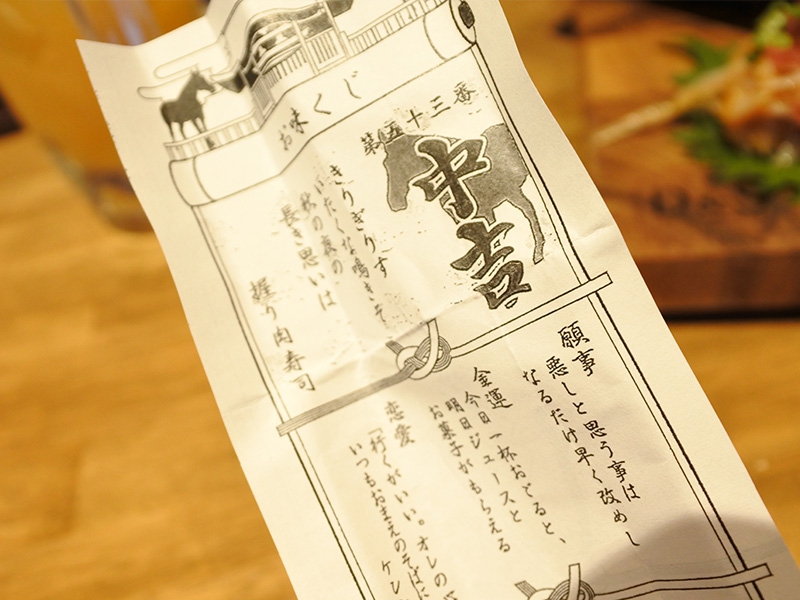 お味くじ
第五十三番
中吉
きりぎりす
いたくな鳴きそ
秋の夜の
長き思いは
握り肉寿司
願事
悪しと思う事は
なるだけ早く改めし
金運
今日一杯おごると、
明日ジュースと
お菓子がもらえる
恋愛
「行くがいい。オレの
いつもおまえのそばに
ケシ